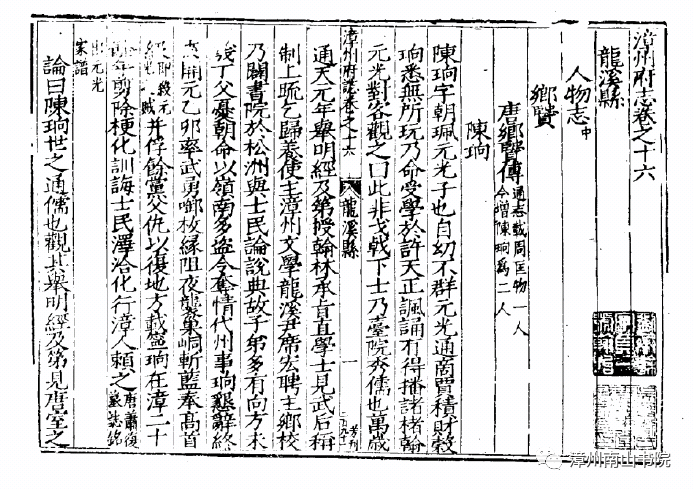 漳州府志卷之十六
龍溪縣
人物志中
鄉賢
唐鄉賢傳通志載周匡物一人
今增陳珦爲二人
陳珦
陳珦字朝珮元光子也自幼不群元光通商賈積財穀
珦悉無所玩乃命受學於許天正諷誦有得播諸楮翰
元光對客觀之曰此非戈戟下士乃臺院秀儒也萬歲
通天元年舉明經及第授翰林承旨直學士見武后稱
漳州府誌卷之十六 龍溪縣 一
制上疏乞歸養使主漳州文學龍溪尹席宏聘主鄉校
乃闢書院於松洲與士民論說典故子弟多有向方未
幾丁父憂朝命以嶺南多盜令奪情代州事珦懇辭終
開元乙卯率武勇啣枚緣阻夜襲巢峒斬藍奉高首
級即殺元
賊并俘餘黨父仇以復地方載寧珦在漳二十
年剪除梗化訓誨士民澤洽化行漳人賴之唐蕭復
墓誌銘
出元光
家譜
論曰陳珦世之通儒也觀其舉明經及第見唐室之
漳州南山书院